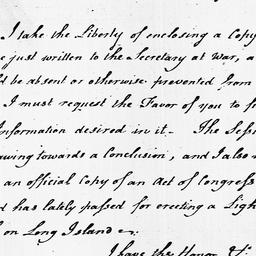 I take the Liberty of enclosing a Copy
just written to the Secretary at War, a
be absent or otherwise prevented from
I must request the Favor of you to
Information desired in it – The Sess
towards a Conclusion, and I also
an official Copy of an Act of Congress
has lately passed for erecting a Ligh
on Long Island
I have the Honor &c.